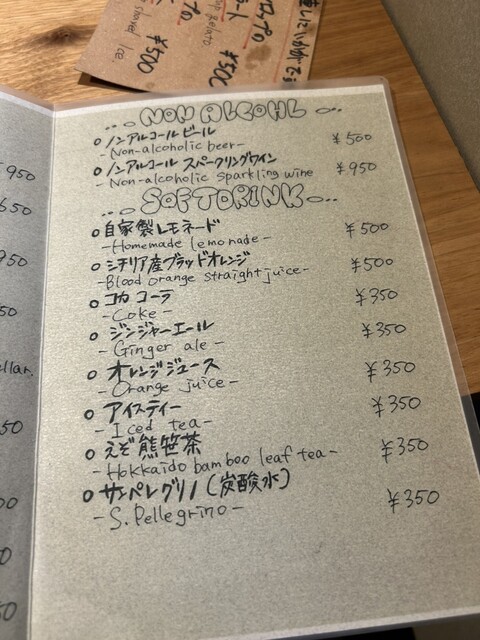 ¥500
shaved Ice.
gelato
¥500
NON ALCOHL
ノンアルコールビール ¥500
-Non-alcoholic beer-
ノンアルコール スパークリングワイン ¥950
-Non-alcoholic sparkling wine
SOFTDRINK
自家製レモネード ¥500
-Homemade lemonade-
シチリア産ブラッドオレンジ ¥500
-Blood orange straight juice-
コカコーラ ¥350
-Coke-
ジンジャーエール ¥350
-Ginger ale-
オレンジジュース ¥350
-Orange juice-
アイスティー ¥350
-Iced tea-
えぞ熊笹茶 ¥350
-Hokkaido bamboo leaf tea-
サンペレグリノ(炭酸水) ¥350
-S.Pellegrino-
950
650
950
50
llar.
50